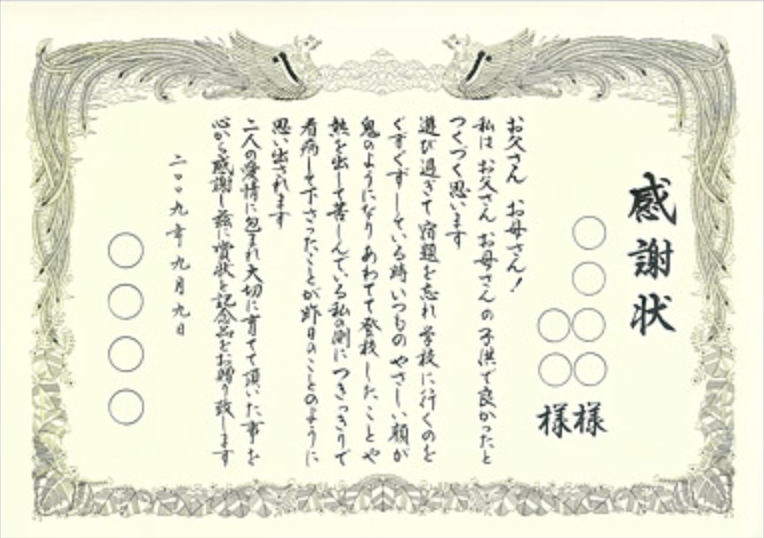 感謝状
○○○○様
○○様
お父さん お母さん!
私は お父さん お母さんの子供で良かったと
つくづく思います
遊び過ぎて宿題を忘れ 学校に行くのを
ぐずぐずしている時 いつものやさしい顔が
鬼のようになり あわてて登校したことや
熱を出して苦しんでいる私の側につきっきりで
看病して下さったことが昨日のことのように
思い出されます
二人の愛情に包まれ大切に育てて頂いた事を
心から感謝し茲に賞状と記念品をお贈り致します
二〇〇九年九月九日
○○○○